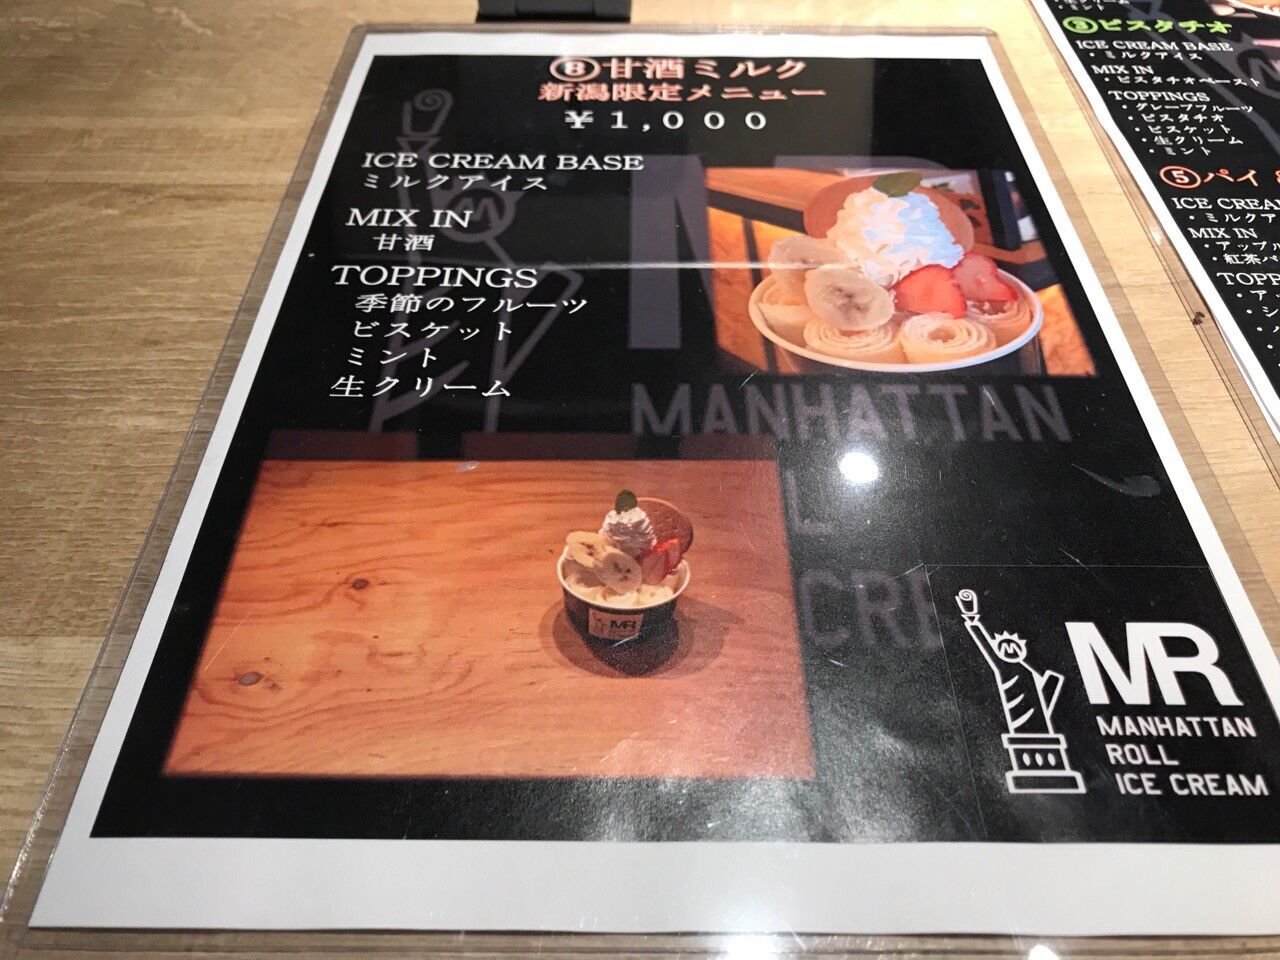 ⑧甘酒ミルク
新潟限定メニュー
￥１,０００
ICE CREAM BASE
ミルクアイス
MIX IN
甘酒
TOPPINGS
季節のフルーツ
ビスケット
ミント
生クリーム
MANHATTAN
MR
MR
MANHATTAN
ROLL
ICE CREAM
③ピスタチオ
ICE CREAM BASE
ミルクアイス
MIX IN
・ピスタチオペースト
TOPPINGS
・グレープフルーツ
・ピスタチオ
・ビスケット
・生クリーム
・ミント
⑤パイ
ICE CREA
・ミルクア
MIX IN
・アップル
・紅茶パ
TOPP
・ア
・シ